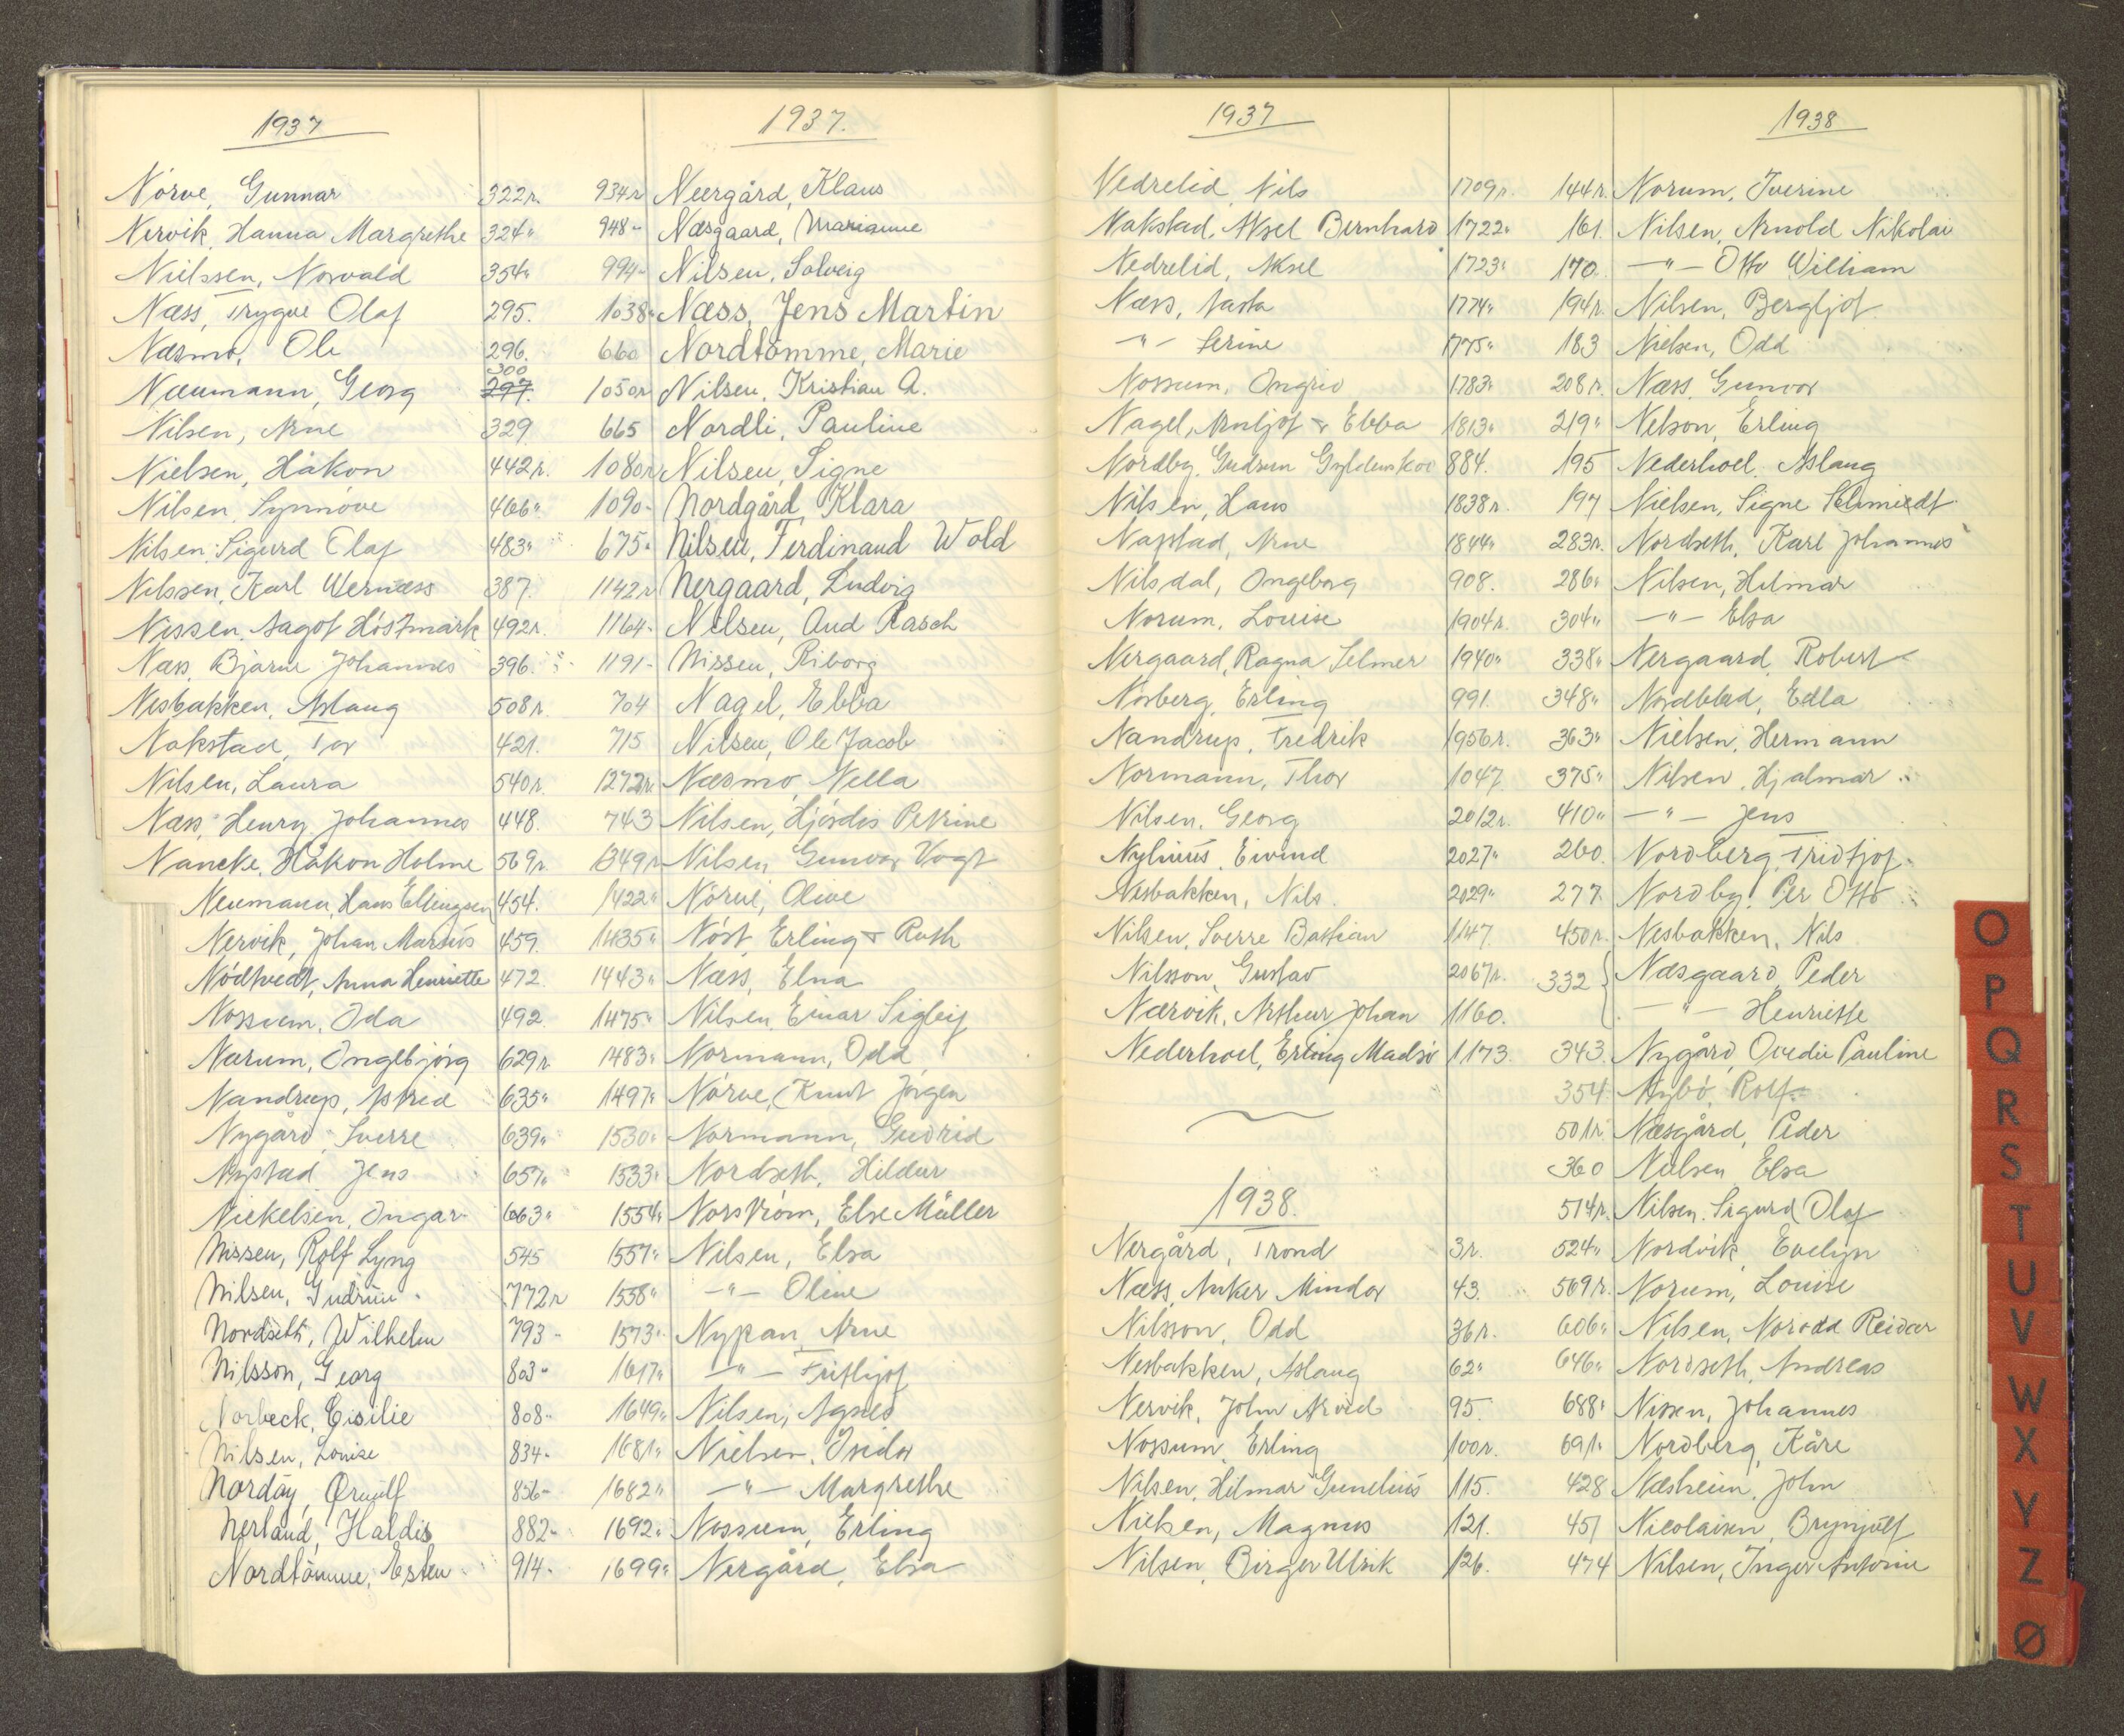 1937
Nörve, Gunnar 322r.
Nervik, Hanna Margrethe 324"
Nielssen, Norvald 354"
Næss, Trygve Olaf 295.
Næsmo, Ole 296.
300
Naumann, Georg 297.
Nilsen, Arne 329
Nielsen, Håkon 442r.
Nilsen, Synnöve 466"
Nilsen, Sigurd Olaf 483"
Nilssen, Karl Wernæss 387.
Nissen, Aagot Höstmark 492r.
Næss, Bjarne Johannes 396.
Nesbakken, Aslaug 508r.
Nakstad, Tor 421.
Nilsen, Laura 540r.
Næss, Henry Johannes 448.
Nancke, Håkon Holme 569r.
Neumann, Hans Ellingsen 454.
Nervik, Johan Marius 459.
Nödtvedt, Anna Henriette 472.
Nossum, Oda 492.
Nærum, Ingebjörg 629r.
Nandrup, Astrid 635"
Nygård, Sverre 639"
Nystad, Jens 657"
Nickelsen, Ingar 663"
Nissen, Rolf Lyng 545
Nilsen, Gudrun 772r
Nordseth, Wilhelm 793-
Nilsson, Georg 803-
Norbeck, Cisilie 808-
Nilsen, Louise 834-
Nordöy, Örnulf 856-
Nerland, Haldis 882-
Nordtömme, Esten 914-
1937.
934r Neergård, Klaus
948- Næsgaard, Marianne
994- Nilsen, Solveig
1038- Næss, Jens Martin
660 Nordtömme, Marie
1050r Nilsen, Kristian A.
665 Nordli, Pauline
1080r Nilsen, Signe
1090- Nordgård, Klara
675- Nilsen, Ferdinand Wold
1142r Nergaard, Ludvig
1164- Nilsen, Aud Rasch
1191- Nissen, Riborg
704 Nagel, Ebba
715 Nilsen, Ole Jacob
1272r. Næsmo, Nella
743 Nilsen, Hjördis Petrine
1349r Nilsen, Gunvor Vogt
1422" Nörve, Olive
1435" Nöst, Erling & Ruth
1443" Næss, Elna
1475" Nilsen, Einar Sigleif
1483" Normann, Odd
1497" Nörve, Knut Jörgen
1530" Normann, Gudrid
1533" Nordseth, Hildur
1554" Norström, Else Müller
1557" Nilsen, Elsa
1558" -"- Oline
1573" Nypan, Arne
1617" -"- Frithjof
1649" Nilsen, Agnes
1681" Nielsen, Isidor
1682" -"- Margrethe
1692" Nossum, Erling
1699" Nergård, Elsa
1937
Nedrelid, Nils 1709r.
Nakstad, Aksel Bernhard 1722"
Nedrelid, Aksel 1723"
Næss, Aasta 1774"
-"- Serine 1775"
Nossum, Ingrid 1783"
Nagel, Arnljot & Ebba 1813"
Nordby, Gudrun 884.
Nilsen, Hans 1838r.
Napstad, Arne 1844"
Nilsdal, Ingeborg 908.
Norum, Louise 1904r.
Nergaard, Ragna Selmer 1940"
Nosberg, Erling 991.
Nandrup, Fredrik 1956r.
Normann, Thor 1047
Nilsen, Georg 2012r.
Nylius, Eivind 2027"
Nesbakken, Nils 2029"
Nilsen, Sverre Bastian 1147.
Nilsson, Gustav 2067r.
Nærvik, Arthur Johan 1160.
Nederhoel, Erling Madsö 1173.
1938.
Nergård, Trond 3r.
Næss, Anker Mindor 43.
Nilsson, Odd 36r.
Nesbakken, Aslaug 62"
Nervik, John Arvid 95.
Nossum, Erling 100r.
Nilsen, Hilmar Gunelius 115.
Nielsen, Magnus 121.
Nilsen, Birger Ulrik 126.
1938
144r. Norum, Iverine
161. Nilsen, Arnold Nikolai
170. -"- Otto William
194r. Nilsen, Bergljot
183 Nielsen, Odd
208r. Næss, Gunvor
219" Nelson, Erling
195 Nederhoel, Aslaug
197 Nielsen, Signe Schmiedt
283r. Nordseth, Karl Johannes
286" Nilsen, Hilmar
304" -"- Elsa
338" Nergaard, Robert
348" Nordblad, Edla
363" Nielsen, Hermann
375" Nilsen, Hjalmar
410" -"- Jens
260. Nordberg, Fridtjof
277. Nordby, Per Otto
450r. Nesbakken, Nils
332 { Næsgaard, Peder
-"- Henriette
343. Nygård, Ovedie Pauline
354. Nybö, Rolf
501r. Næsgård, Peder
360 Nielsen, Elsa
514r. Nilsen, Sigurd Olaf
524" Nordvik, Evelyn
569r. Norum, Louise
606" Nilsen, Norodd Reidar
646" Nordseth, Andreas
688" Nissen, Johannes
691" Nordberg, Kåre
428 Næsheim, John
451 Nicolaisen, Brynjulf
474 Nilsen, Inger Antonie
O
P
Q
R
S
T
U
V
W
X
Y
Z
Ø